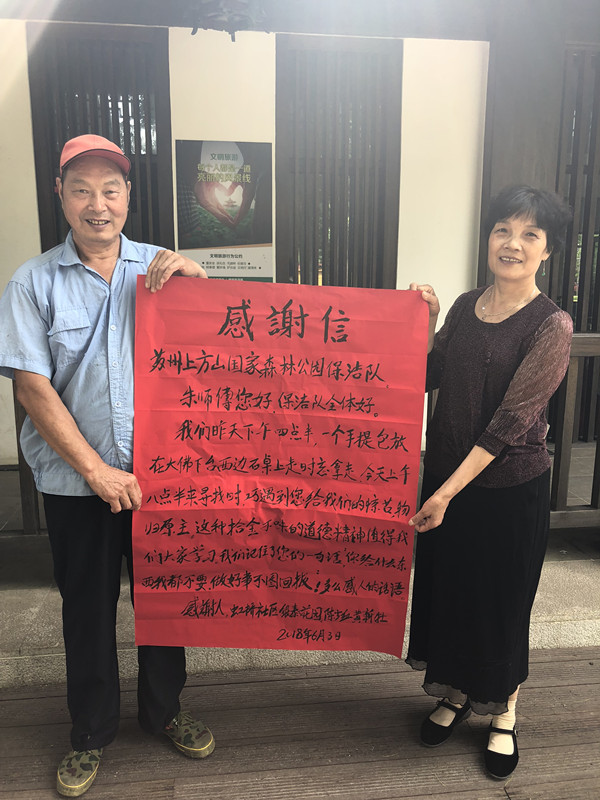 文明旅游
每个人都是一道
亮丽的风景线
文明旅游行为公约
感謝信
苏州上方山国家森林公园保洁队
朱师傅您好,保洁队全体好。
我们昨天下午四点半,一个手提包放
在大佛下台西边石桌上走时忘拿走,今天上午
八点半来寻找时,巧遇到您给我们的
归原主,这种拾金不昧的道德精神值得我
们大家学习,我们记住了您的一句话"你给什么东
西我都不要,做好事不图回报"多么感人的话语
感謝人,虹桥社区
2018年6月3日